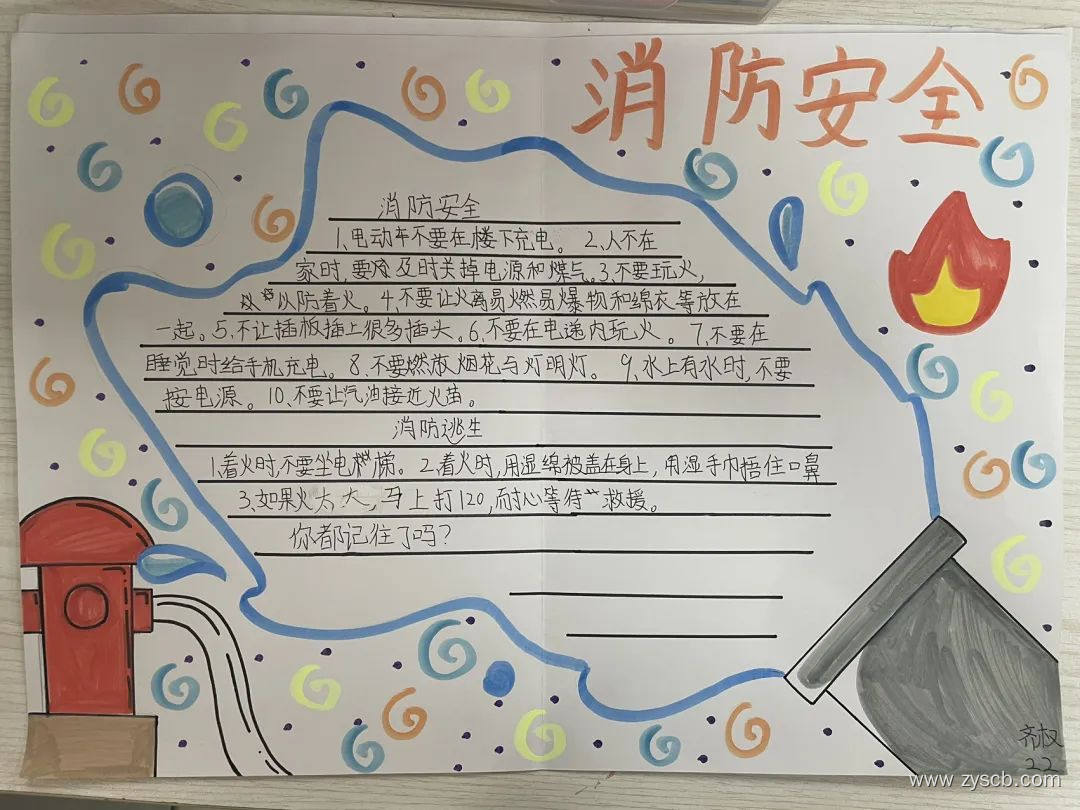 消防安全
消防安全
1、电动车不要在楼下充电。 2、人不在
家时,要及时关掉电源和煤气。3、不要玩火,
以防着火。4、不要让火离易燃易爆物和绵衣等放在
一起。5、不让插板插上很多插头。6、不要在电递内玩火。 7、不要在
睡觉时给手机充电。8、不要燃放烟花与灯明灯。 9、水上有水时,不要
按电源。10、不要让汽油接近火苗。
消防逃生
1、着火时,不要坐电梯。2、着火时,用湿绵被盖在身上,用湿手巾捂住口鼻
3、如果火太大,马上打120,耐心等待救援。
你都记住了吗?
齐权
22
www.zyscb.com